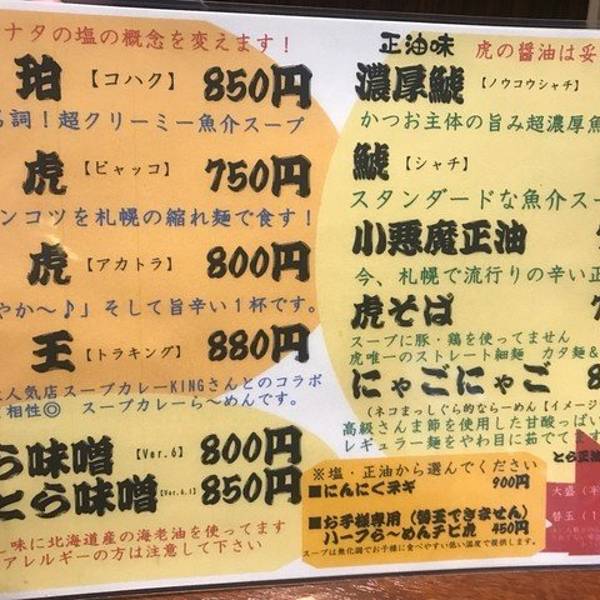 ナタの塩の概念を変えます！
珀【コハク】 850円
詞！超クリーミー魚介スープ
虎【ビャッコ】 750円
ンコツを札幌の縮れ麺で食す！
虎【アカトラ】 800円
やか～♪」そして旨辛い１杯です。
王【トラキング】 880円
人気店スープカレーKINGさんとのコラボ
相性◎　スープカレーら～めんです。
ら味噌【Ver.6】 800円
とら味噌【Ver.6.1】 850円
味に北海道産の海老油を使ってます
アレルギーの方は注意して下さい
正油味 虎の醤油は妥
濃厚鯱【ノウコウシャチ】
かつお主体の旨み超濃厚魚
鯱【シャチ】
スタンダードな魚介スー
小悪魔正油
今、札幌で流行りの辛い正
虎そば 7
スープに豚・鶏を使ってません
虎唯一のストレート細麺　カタ麺&
にゃごにゃご 8
（ネコまっしぐら的ならーめん【イメージ
高級さんま節を使用した甘酸っぱい
レギュラー麺をやわ目に茹でてます
※塩・正油から選んでください
■にんにくネギ 900円
■お子様専用（替玉できません）
ハーフら～めんチビ虎 450円
スープは無化調でお子様に食べやすい低い温度で提供します。
とら正油
大盛（半
替玉（1